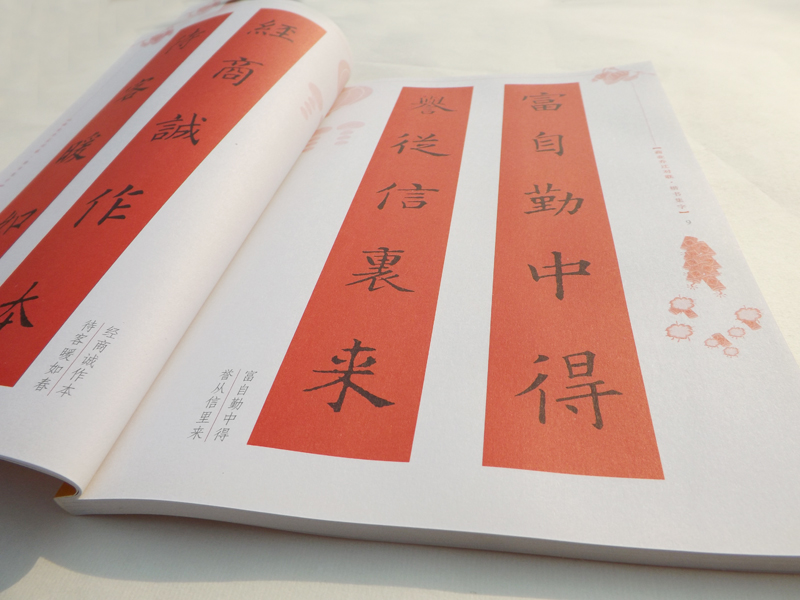 富自勤中得
譽從信裏来
富自勤中得
誉从信里来
經商誠作本
待客暖如
经商诚作本
待客暖如春